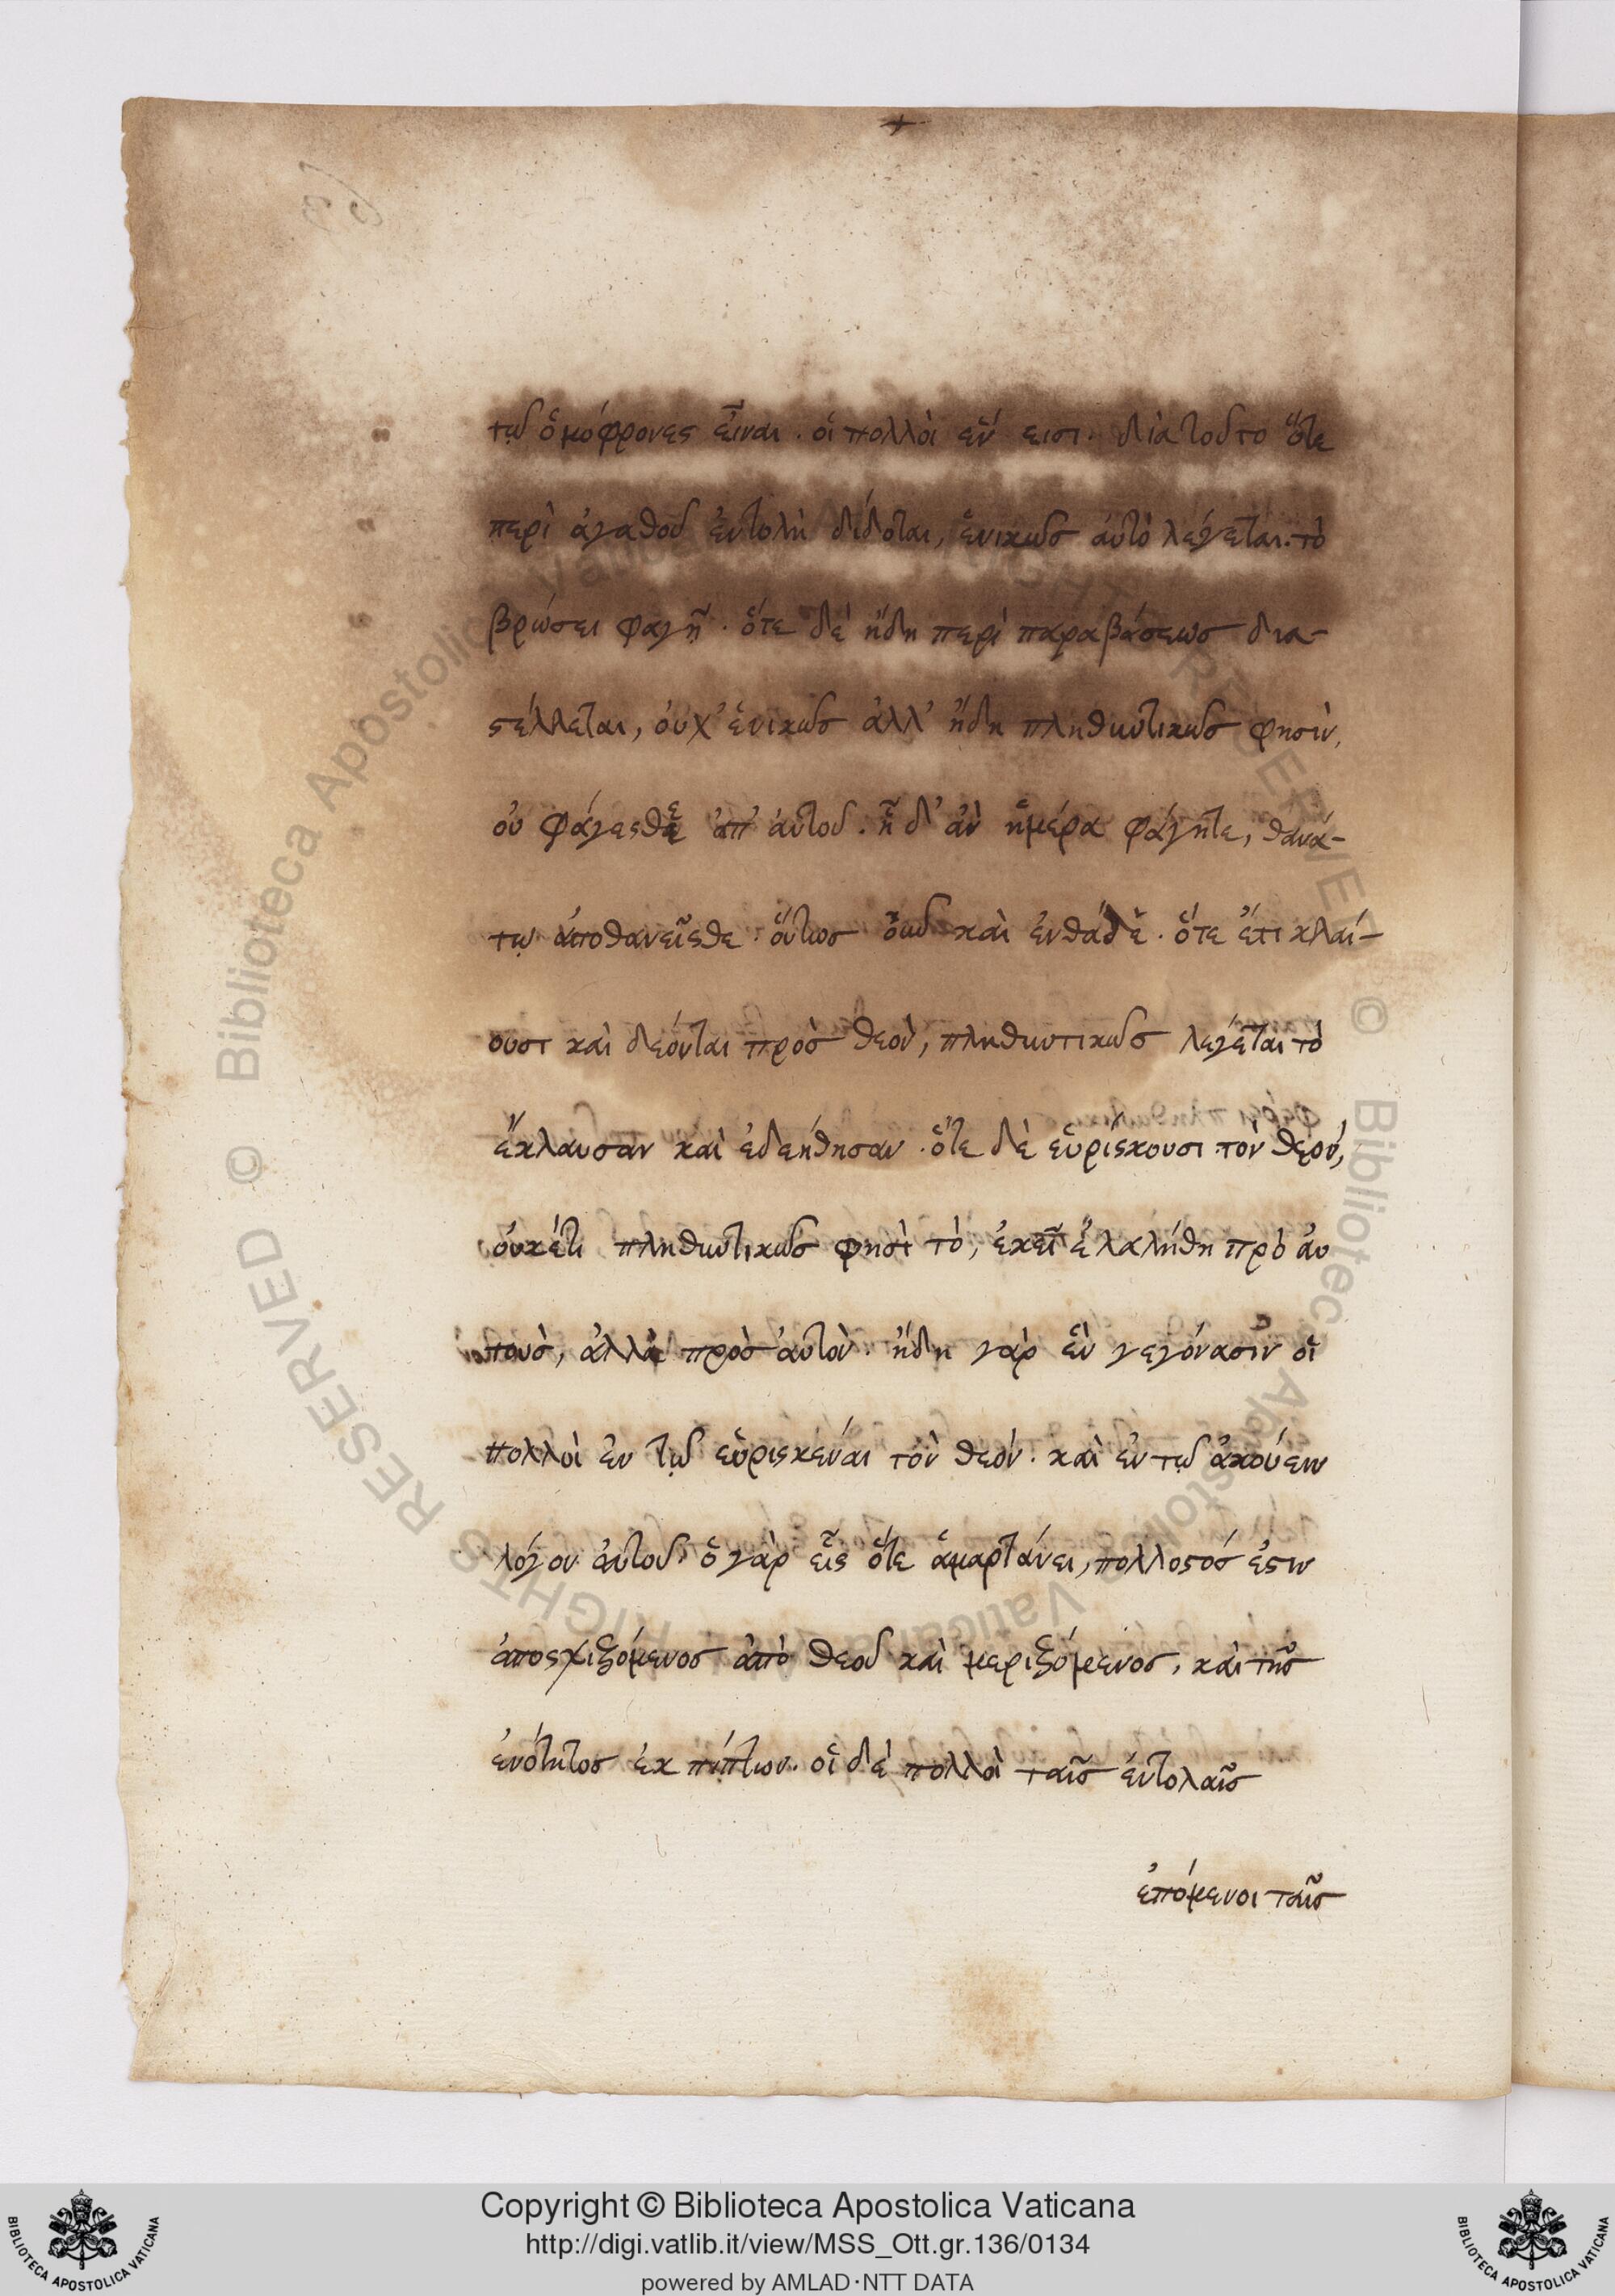 τῷ ὁμόφρονες εἶναι. οἱ πολλοὶ ἕν εισι. διὰ τοῦτο ὅτε
περὶ ἀγαθοῦ ἐντολὴ δίδοται, ἑνικῶς αὐτὸ λέγεται. τὸ
βρώσει φαγῇ. ὅτε δὲ ἤδη περὶ παραβάσεως δια-
στέλλεται, οὐχ' ἑνικῶς ἀλλ' ἤδη πληθυντικῶς φησὶν,
οὐ φάγεσθε ἀπ' αὐτοῦ. ᾗ δ' ἂν ἡμέρα φάγητε, θανά-
τῳ ἀποθανεῖσθε. οὕτως οὖν καὶ ἐνθάδε. ὅτε ἔτι κλαί-
ουσι καὶ δέονται πρὸς θεὸν, πληθυντικῶς λέγεται τὸ
ἔκλαυσαν καὶ ἐδεήθησαν. ὅτε δὲ εὑρίσκουσι τὸν θεὸν,
οὐκέτι πληθυντικῶς φησὶ τὸ, ἐκεῖ ἐλαλήθη πρὸ αυ
τοὺς, ἀλλὰ πρὸς αὐτὸν. ἤδη γὰρ ἓν γεγόνασιν οἱ
πολλοὶ ἐν τῷ εὑρισκέναι τὸν θεόν. καὶ ἐν τῷ ἀκούειν
λόγον αὐτοῦ. ὁ γὰρ εἷς ὅτε ἁμαρτάνει, πολλοστός ἐστιν
ἀποσχιζόμενος ἀπὸ θεοῦ καὶ μεριζόμενος, καὶ τῆς
ἑνότητος ἐκ πίπτων. οἱ δὲ πολλοὶ ταῖς ἐντολαῖς
ἑπόμενοι ταῖς
Copyright © Biblioteca Apostolica Vaticana
http://digi.vatlib.it/view/MSS_Ott.gr.136/0134
powered by AMLAD·NTT DATA
BIBLIOTECA APOSTOLICA VATICANA
BIBLIOTECA APOSTOLICA VATICANA
© Biblioteca Apostolica Vaticana ALL RIGHTS RESERVED